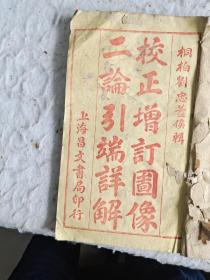 桐柏劉忠葢侯輯
校正增訂圖像
二論引端詳解
上海昌文書局印行